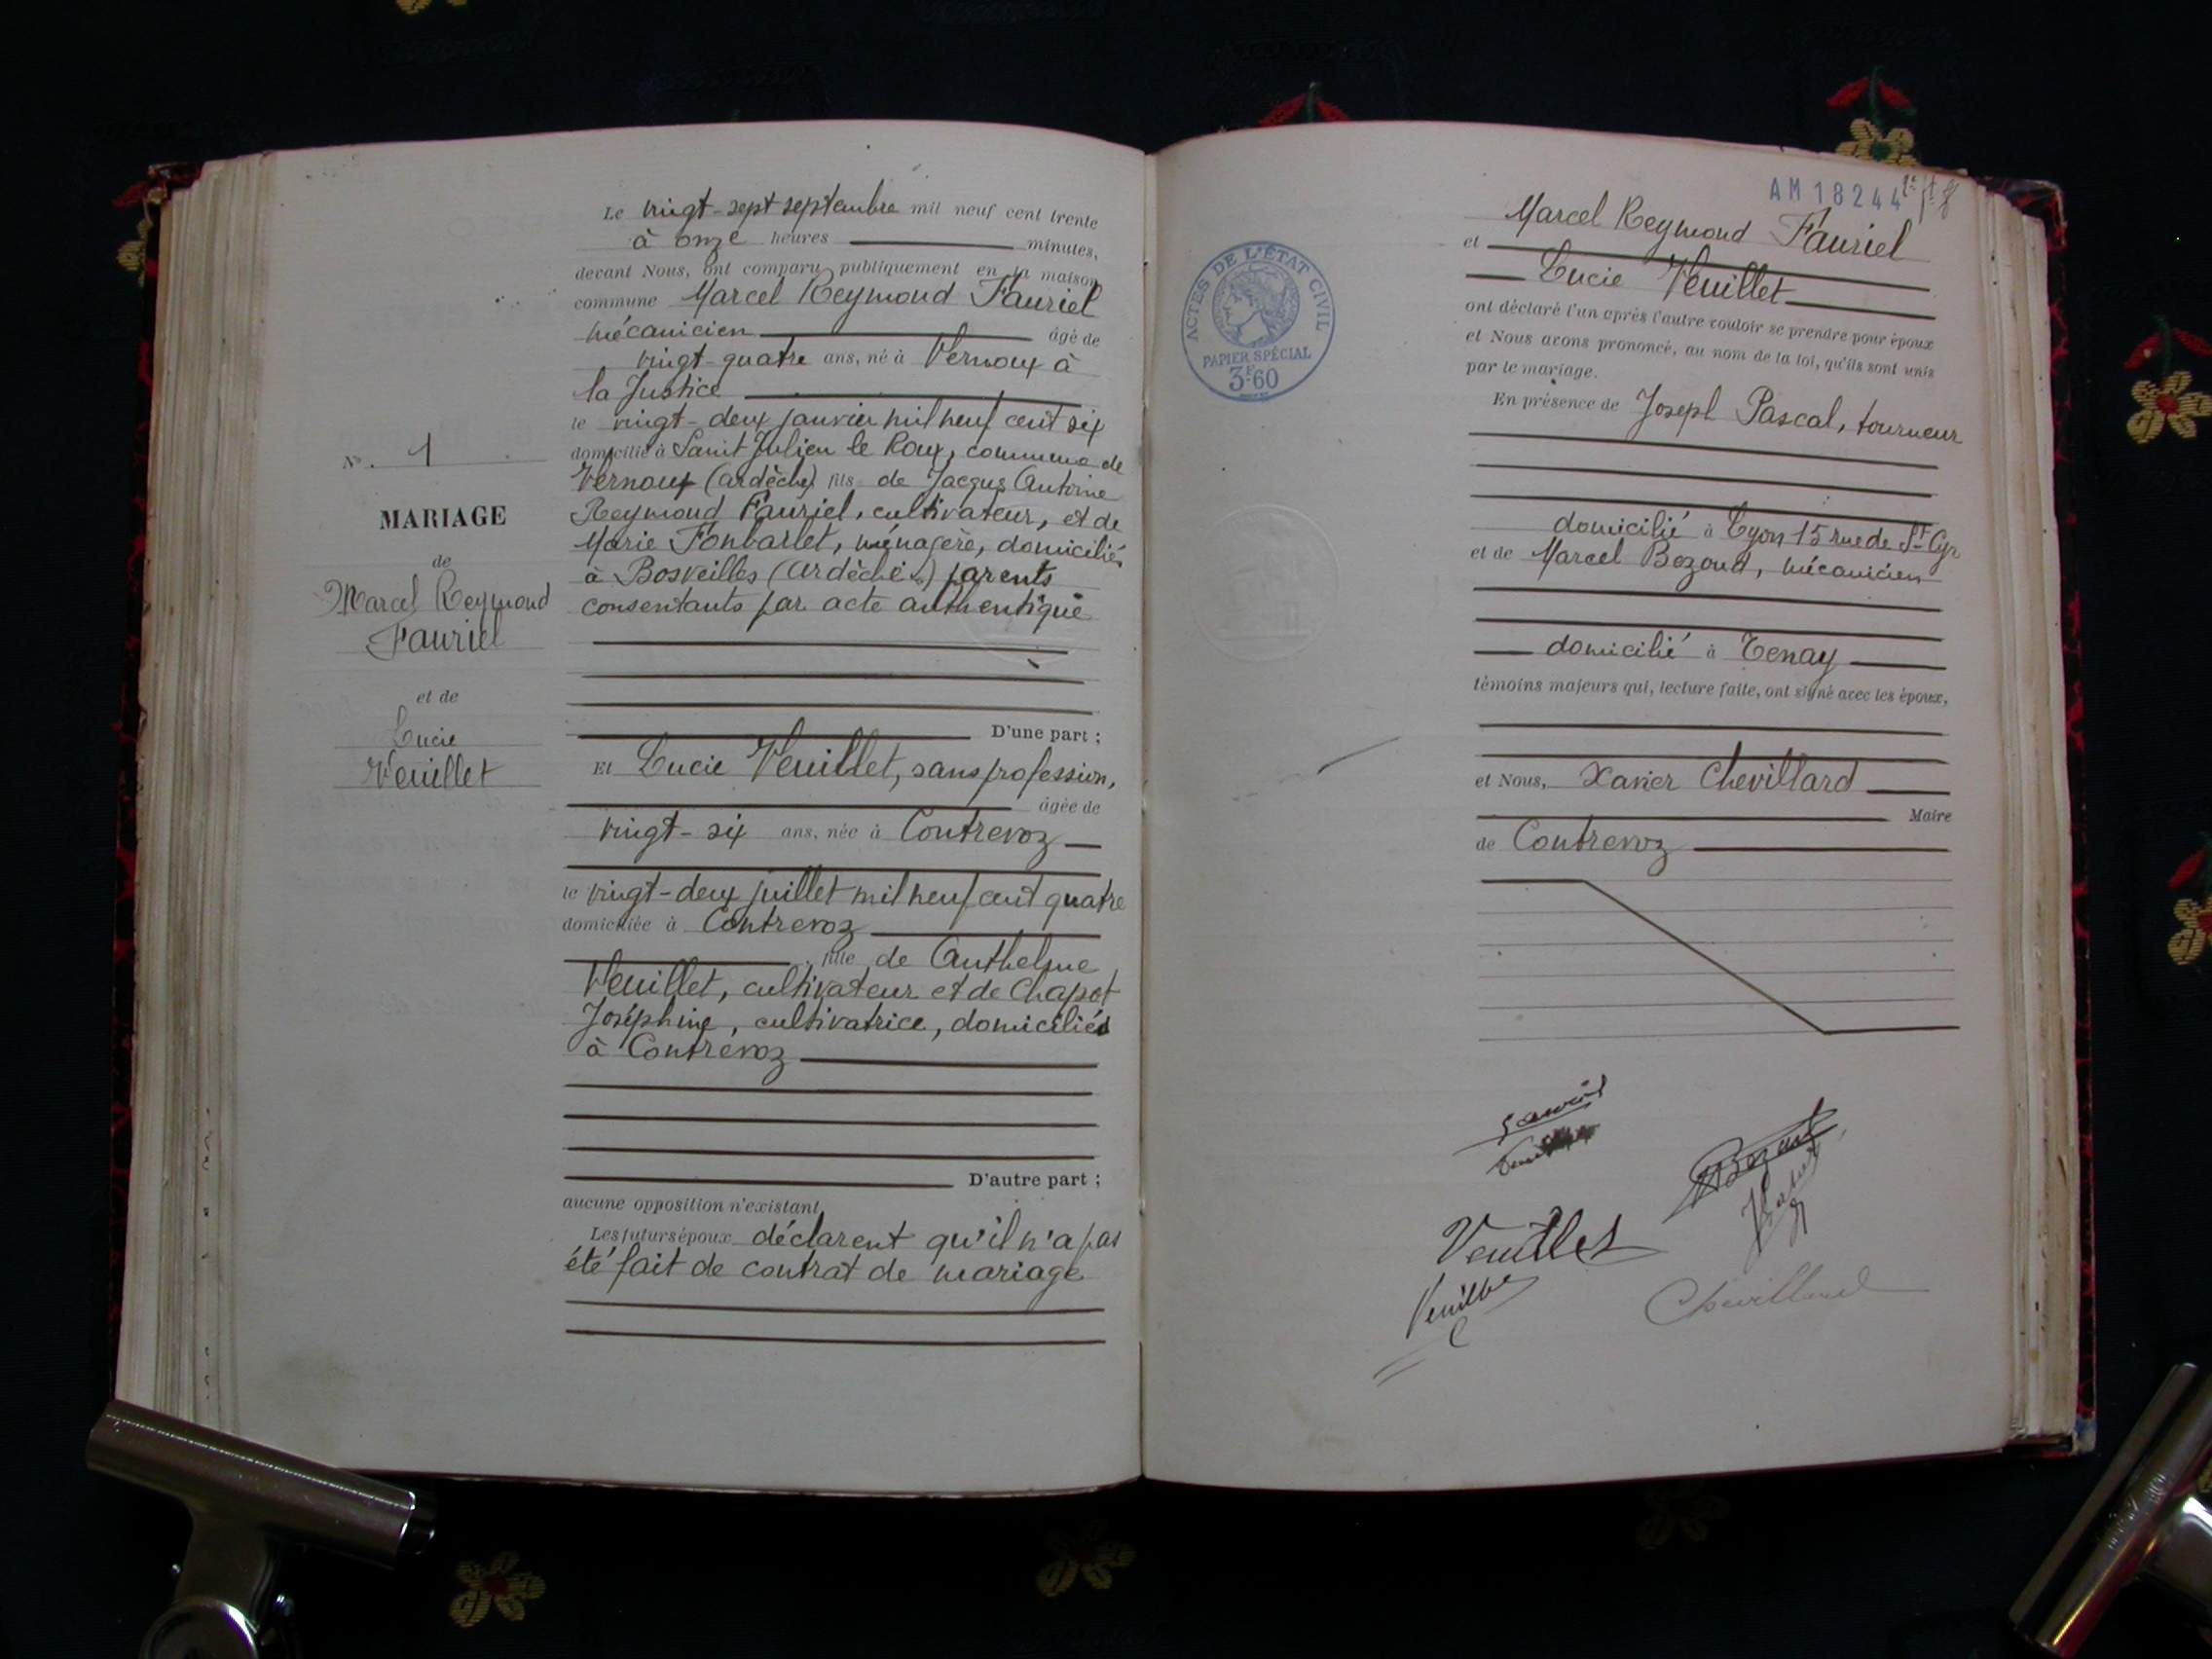 Le vingt-sept septembre mil neuf cent trente
à onze heures minutes,
devant Nous, ont comparu publiquement en la maison
commune Marcel Reymond Fauriel
mécanicien âgé de
vingt-quatre ans, né à Vernoux à
la Justice
le vingt-deux janvier mil neuf cent six
domicilié à Saint Julien le Roux, commune de
Vernoux (Ardèche) fils de Jacques Antoine
Reymond Fauriel, cultivateur, et de
Marie Fonbarlet, ménagère, domiciliés
à Bosveilles (Ardèche) parents
consentants par acte authentique
D'une part ;
Et Lucie Veuillet, sans profession,
âgée de
vingt-six ans, née à Contrevoz
le vingt-deux juillet mil neuf cent quatre
domiciliée à Contrevoz
fille de Anthelme
Veuillet, cultivateur et de Chapot
Joséphine, cultivatrice, domiciliés
à Contrevoz
D'autre part ;
aucune opposition n'existant
Les futurs époux déclarent qu'il n'a pas
été fait de contrat de mariage
N°. 1
MARIAGE
de
Marcel Reymond
Fauriel
et de
Lucie
Veuillet
AM 18244
ACTES DE L'ÉTAT CIVIL
PAPIER SPÉCIAL
3F60
Marcel Reymond Fauriel
et
Lucie Veuillet
ont déclaré l'un après l'autre vouloir se prendre pour époux
et Nous avons prononcé, au nom de la loi, qu'ils sont unis
par le mariage.
En présence de Joseph Pascal, tourneur
domicilié à Lyon 15 rue de St Cyr
et de Marcel Bozond, mécanicien
domicilié à Tenay
témoins majeurs qui, lecture faite, ont signé avec les époux,
et Nous, Xavier Chevillard
Maire
de Contrevoz
Fauriel
Veuillet
Veuillet
Chevillard